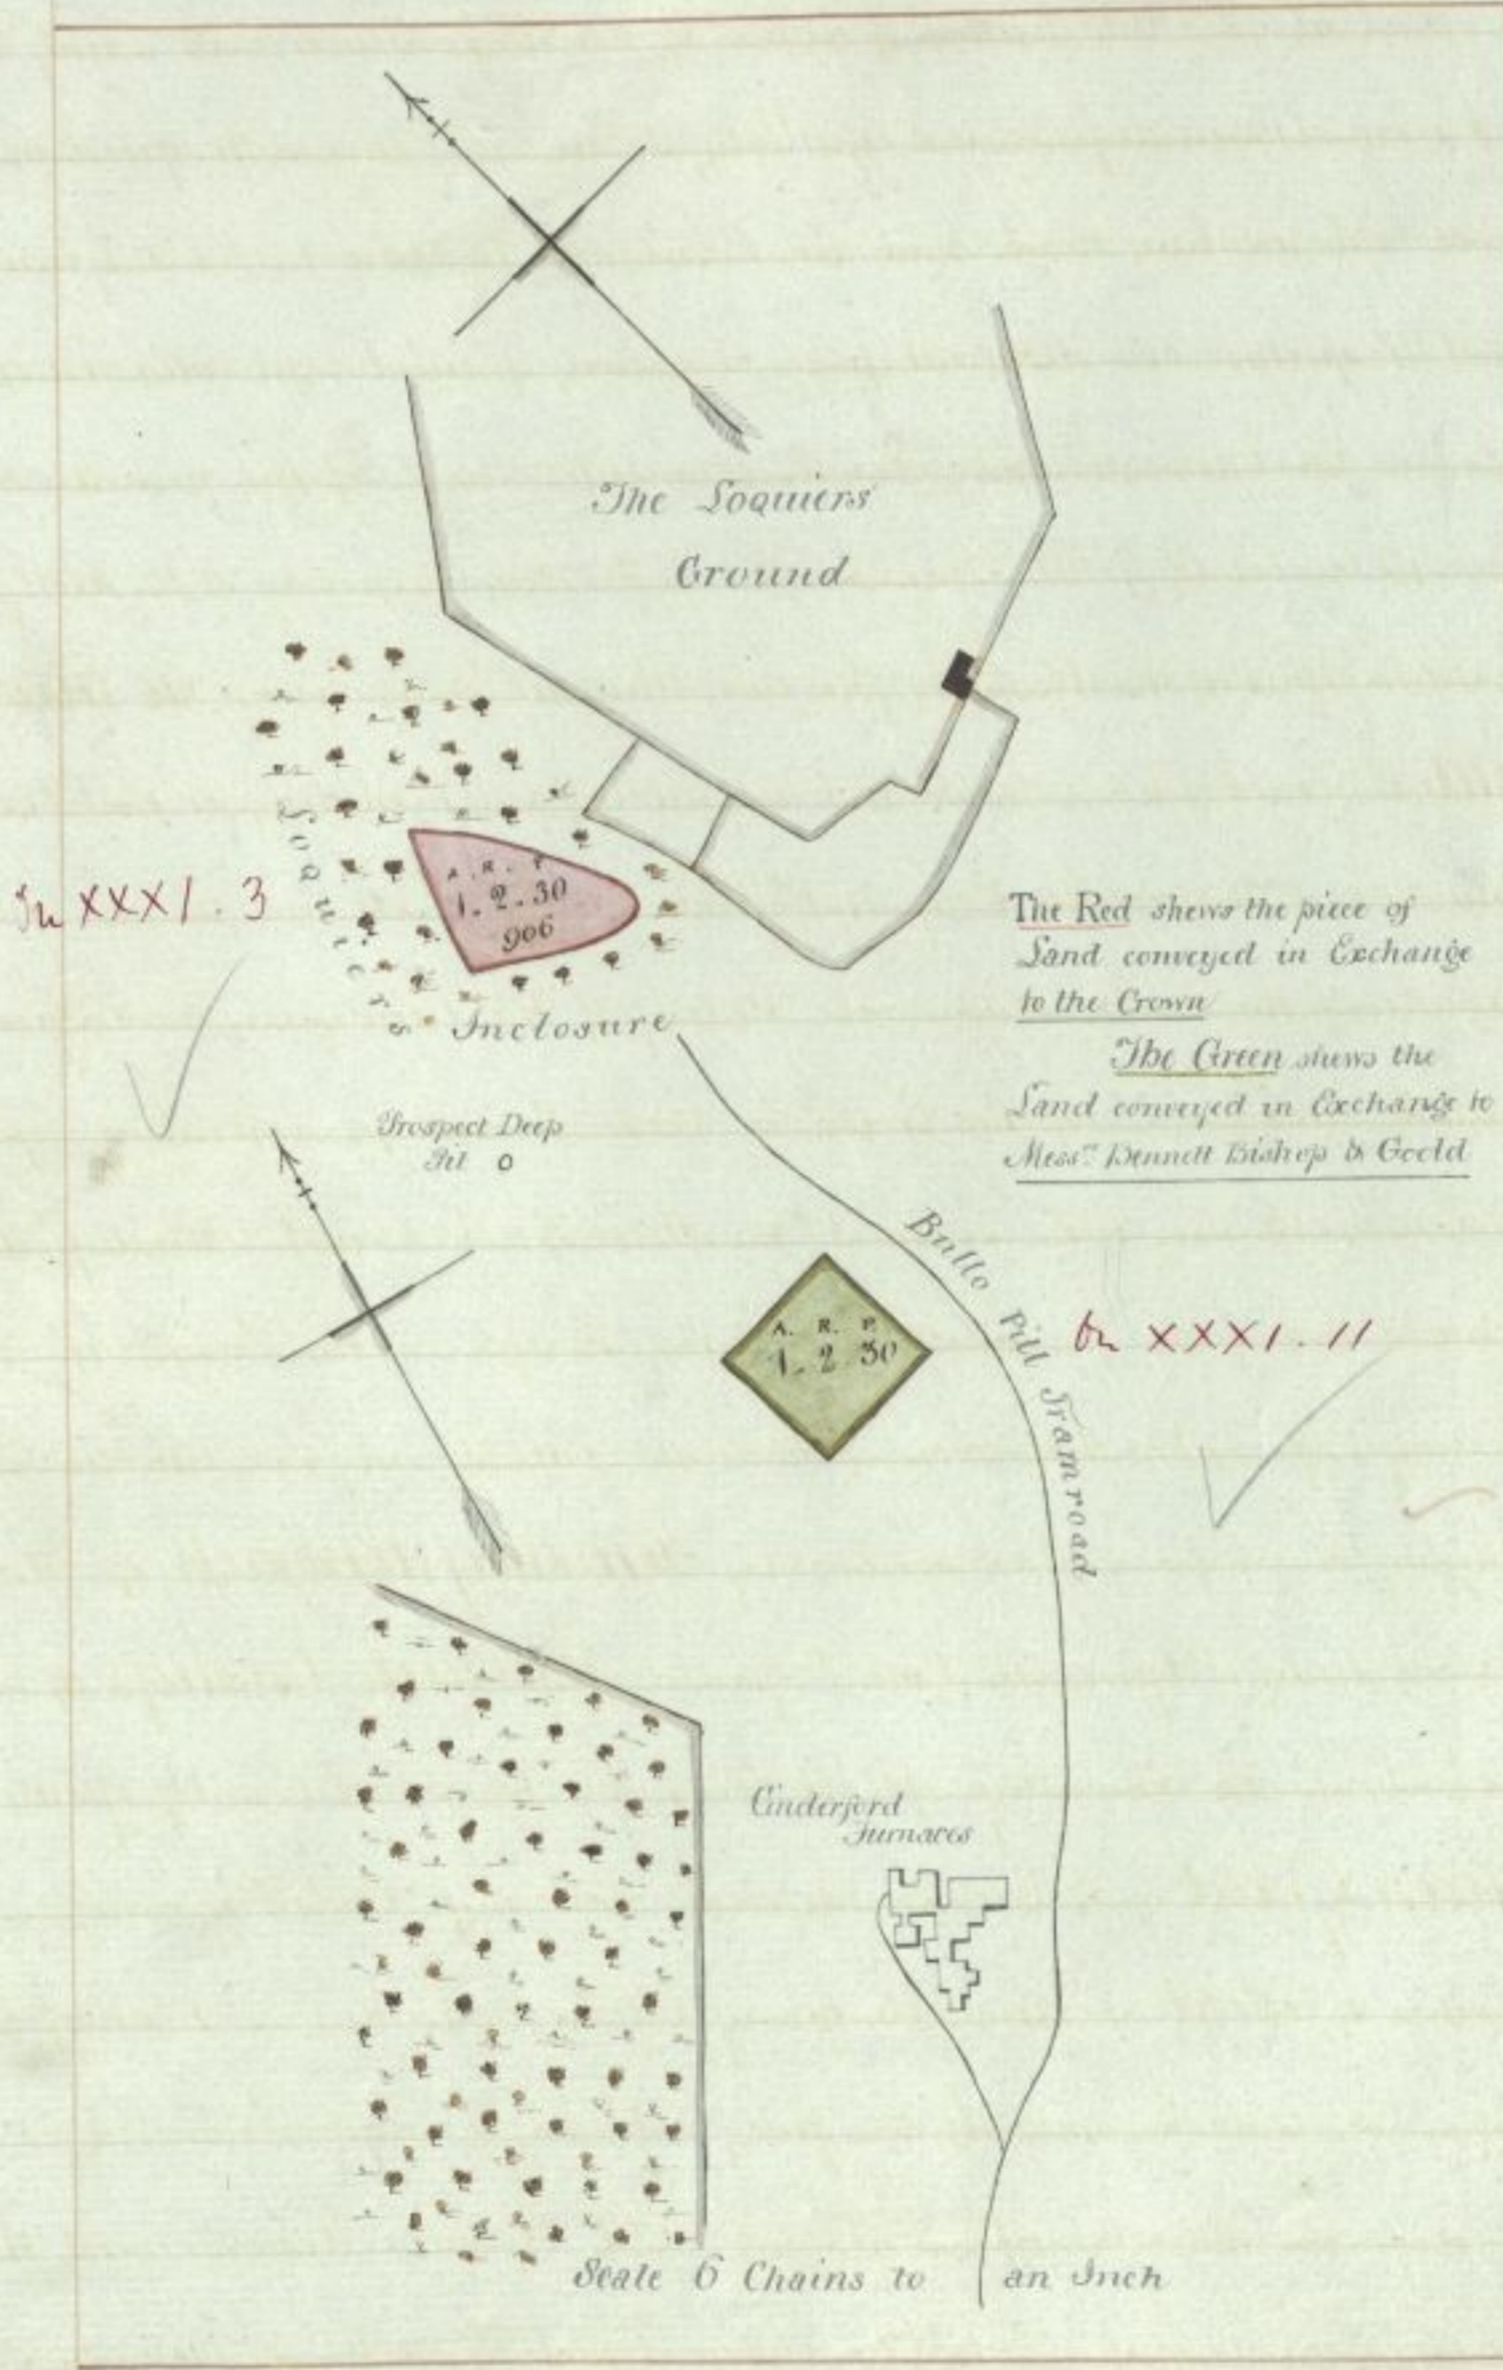 The Loquiers
Ground
A. R. P.
1. 2. 30
906
In XXXI. 3
Loquiers
Inclosure
The Red shews the piece of
Land conveyed in Exchange
to the Crown
The Green shews the
Land conveyed in Exchange to
Mess.rs Bennett Bishop & Goold
Prospect Deep
Pit
Bullo Pill Tramroad
A. R. P.
1. 2. 30
On XXXI. 11
Cinderford
Furnaces
Scale 6 Chains to an Inch